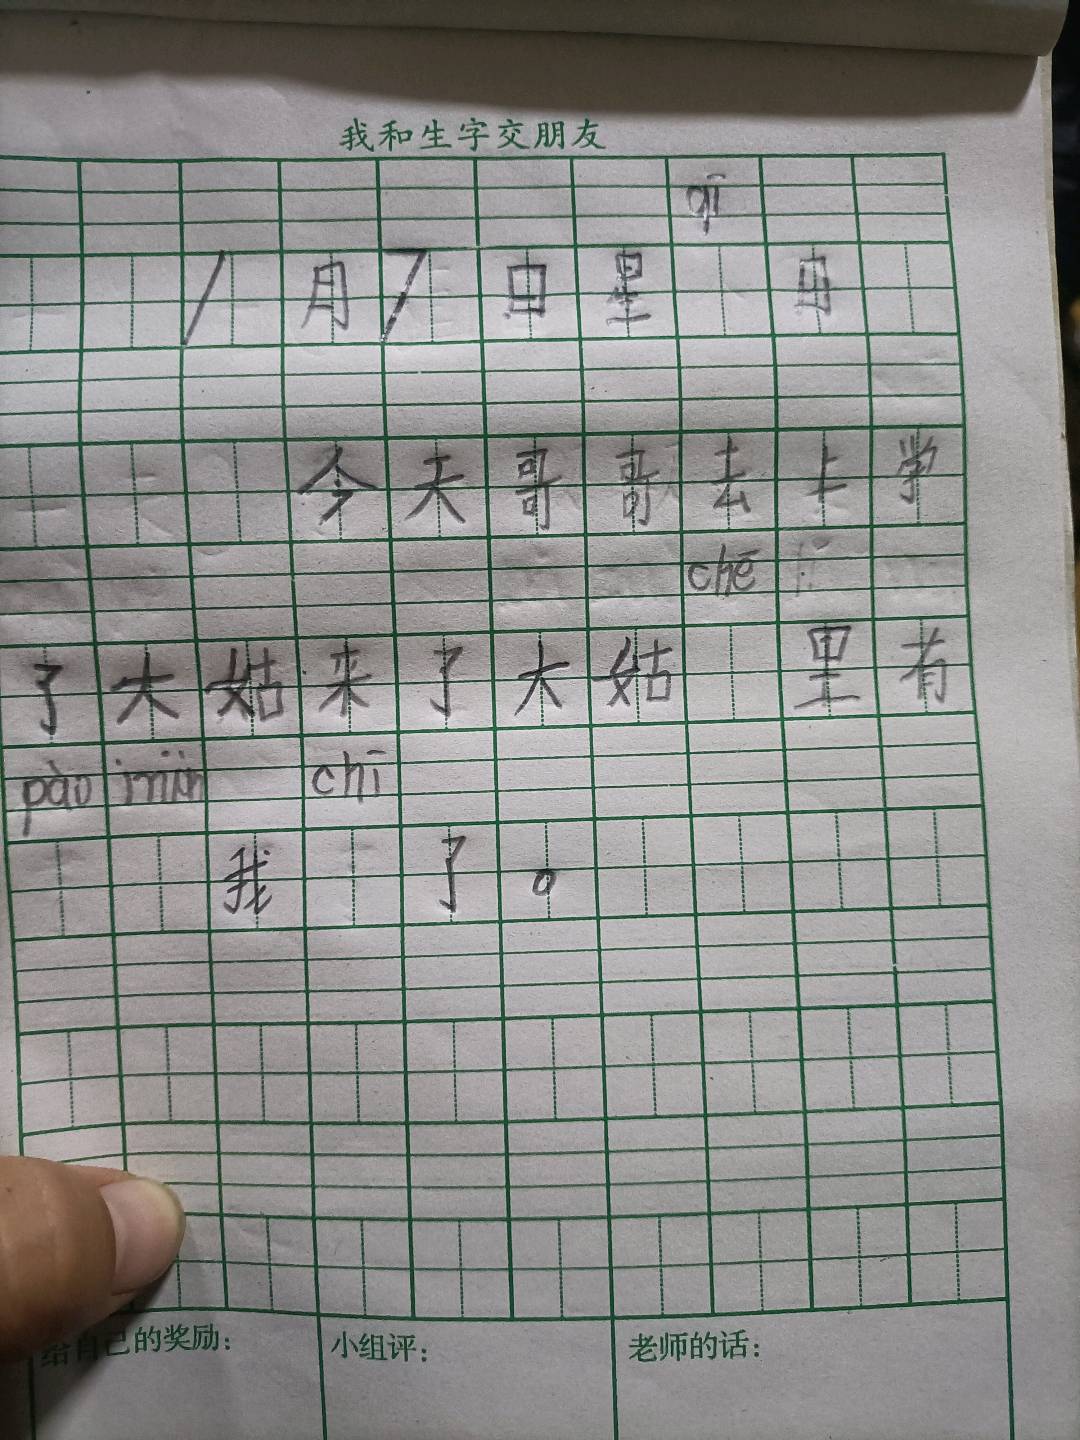 我和生字交朋友
qī
1月7日星 日
今天哥哥去上学
chē
了大姑来了大姑 里有
pào miàn chī
我 了。
给自己的奖励: 小组评: 老师的话: